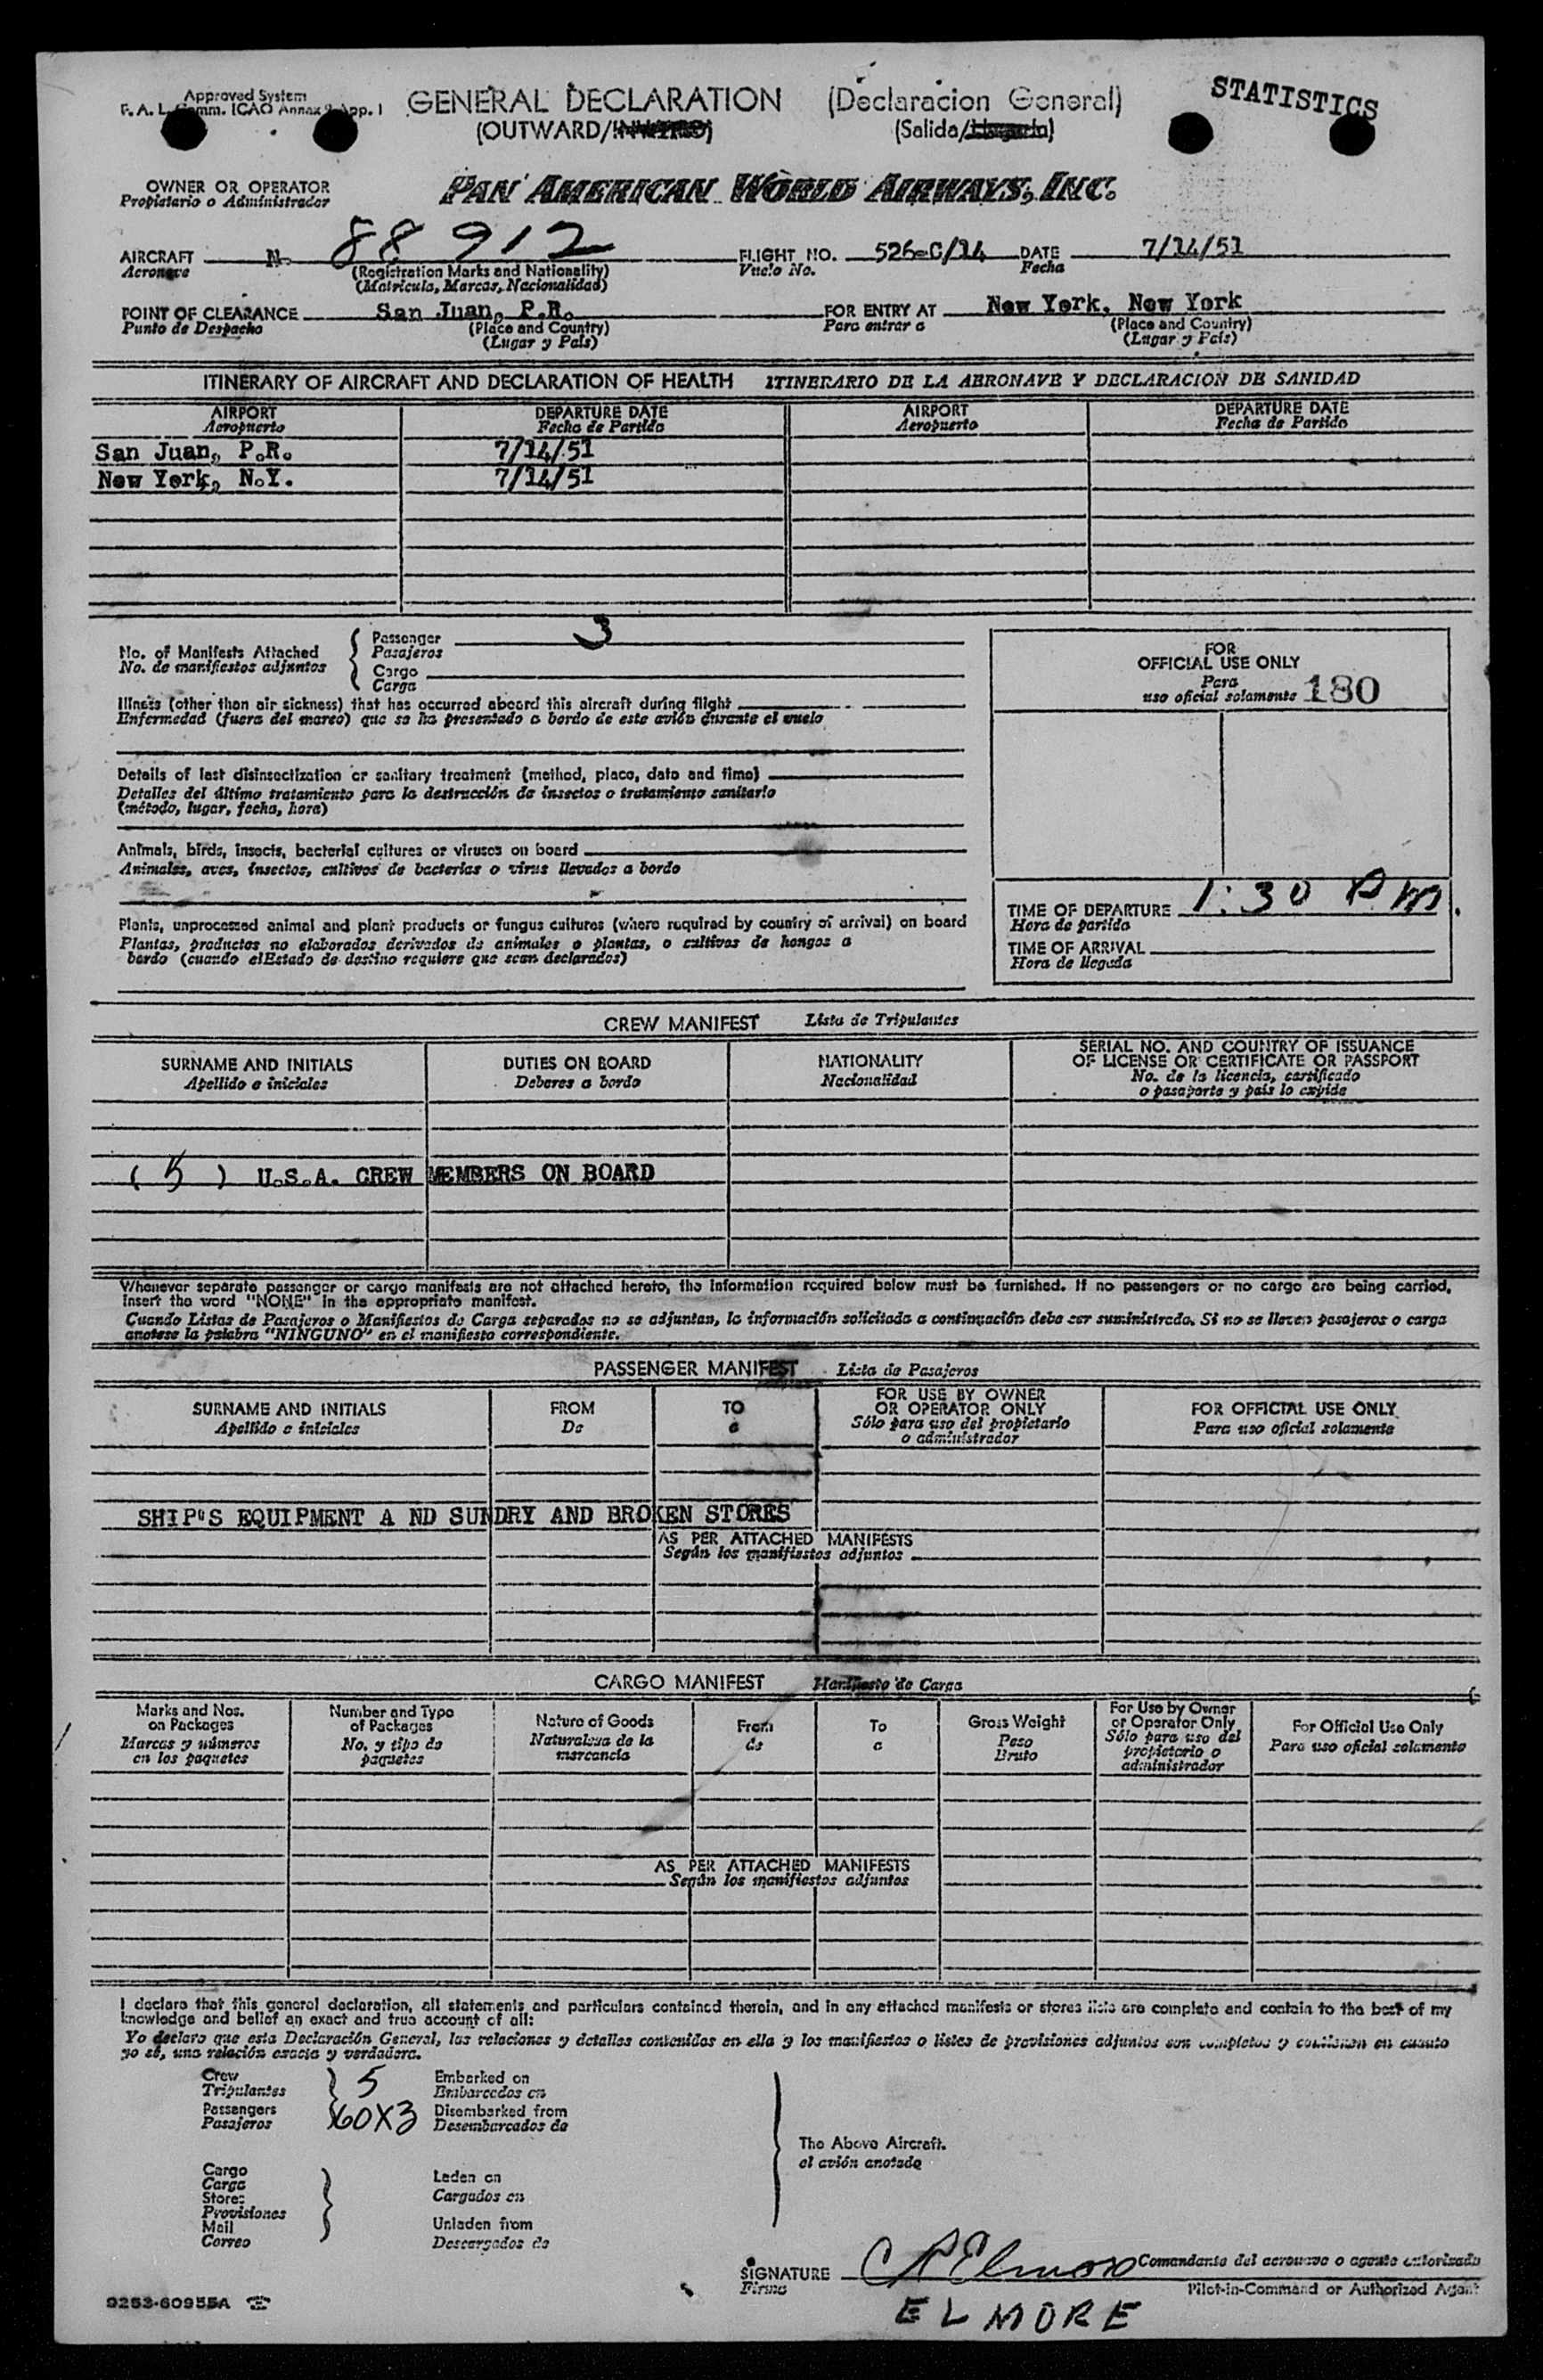 Approved System
F. A. L. Comm. ICAO Annex 9 App. 1
GENERAL DECLARATION (Declaracion General)
STATISTICS
(OUTWARD/INWARD) (Salida/Llegada)
OWNER OR OPERATOR
Propietario o Administrador
PAN AMERICAN WORLD AIRWAYS, INC.
AIRCRAFT N- 88912 FLIGHT NO. 526-C/14 DATE 7/14/51
Aeronave (Registration Marks and Nationality) Vuelo No. Fecha
(Matricula, Marcas, Nacionalidad)
POINT OF CLEARANCE San Juan, P.R. FOR ENTRY AT New York, New York
Punto de Despacho (Place and Country) Para entrar a (Place and Country)
(Lugar y País) (Lugar y País)
ITINERARY OF AIRCRAFT AND DECLARATION OF HEALTH ITINERARIO DE LA AERONAVE Y DECLARACION DE SANIDAD
AIRPORT DEPARTURE DATE AIRPORT DEPARTURE DATE
Aeropuerto Fecha de Partida Aeropuerto Fecha de Partida
San Juan, P.R. 7/14/51
New York, N.Y. 7/14/51
No. of Manifests Attached
No. de manifiestos adjuntos
Passenger 3
Pasajeros
Cargo
Carga
FOR
OFFICIAL USE ONLY
Para
uso oficial solamente 180
Illness (other than air sickness) that has occurred aboard this aircraft during flight
Enfermedad (fuera del mareo) que se ha presentado a bordo de este avión durante el vuelo
Details of last disinsectization or sanitary treatment (method, place, date and time)
Detalles del último tratamiento para la destrucción de insectos o tratamiento sanitario
(método, lugar, fecha, hora)
Animals, birds, insects, bacterial cultures or viruses on board
Animales, aves, insectos, cultivos de bacterias o virus llevados a bordo
Plants, unprocessed animal and plant products or fungus cultures (where required by country of arrival) on board
Plantas, productos no elaborados derivados de animales o plantas, o cultivos de hongos a
bordo (cuando el Estado de destino requiere que sean declarados)
TIME OF DEPARTURE 1:30 PM.
Hora de partida
TIME OF ARRIVAL
Hora de llegada
CREW MANIFEST Lista de Tripulantes
SURNAME AND INITIALS DUTIES ON BOARD NATIONALITY SERIAL NO. AND COUNTRY OF ISSUANCE
OF LICENSE OR CERTIFICATE OR PASSPORT
Apellido e iniciales Deberes a bordo Nacionalidad No. de la licencia, certificado
o pasaporte y país lo expide
( 5 ) U.S.A. CREW MEMBERS ON BOARD
Whenever separate passenger or cargo manifests are not attached hereto, the information required below must be furnished. If no passengers or no cargo are being carried,
insert the word "NONE" in the appropriate manifest.
Cuando Listas de Pasajeros o Manifiestos de Carga separados no se adjuntan, la información solicitada a continuación debe ser suministrada. Si no se llevan pasajeros o carga
anotese la palabra "NINGUNO" en el manifiesto correspondiente.
PASSENGER MANIFEST Lista de Pasajeros
SURNAME AND INITIALS FROM TO FOR USE BY OWNER
OR OPERATOR ONLY FOR OFFICIAL USE ONLY
Apellido e iniciales De a Sólo para uso del propietario
o administrador Para uso oficial solamente
SHIP'S EQUIPMENT A ND SUNDRY AND BROKEN STORES
AS PER ATTACHED MANIFESTS
Según los manifiestos adjuntos
CARGO MANIFEST Manifiesto de Carga
Marks and Nos.
on Packages
Marcas y números
en los paquetes
Number and Type
of Packages
No. y tipo de
paquetes
Nature of Goods
Naturaleza de la
mercancía
From
de
To
a
Gross Weight
Peso
Bruto
For Use by Owner
or Operator Only
Sólo para uso del
propietario o
administrador
For Official Use Only
Para uso oficial solamente
AS PER ATTACHED MANIFESTS
Según los manifiestos adjuntos
I declare that this general declaration, all statements and particulars contained therein, and in any attached manifests or stores lists are complete and contain to the best of my
knowledge and belief an exact and true account of all:
Yo declaro que esta Declaración General, las relaciones y detalles contenidos en ella y los manifiestos o listas de provisiones adjuntos son completos y contienen en cuanto
yo sé, una relación exacta y verdadera.
Crew 5 Embarked on
Tripulantes Embarcados en
Passengers 60X3 Disembarked from
Pasajeros Desembarcados de
The Above Aircraft.
el avión anotado
Cargo
Carga
Stores
Provisiones
Mail
Correo
Laden on
Cargados en
Unladen from
Descargados de
SIGNATURE C R Elmore Comandante del aeronave o agente autorizado
Firma Pilot-in-Command or Authorized Agent
ELMORE
9253-60955A